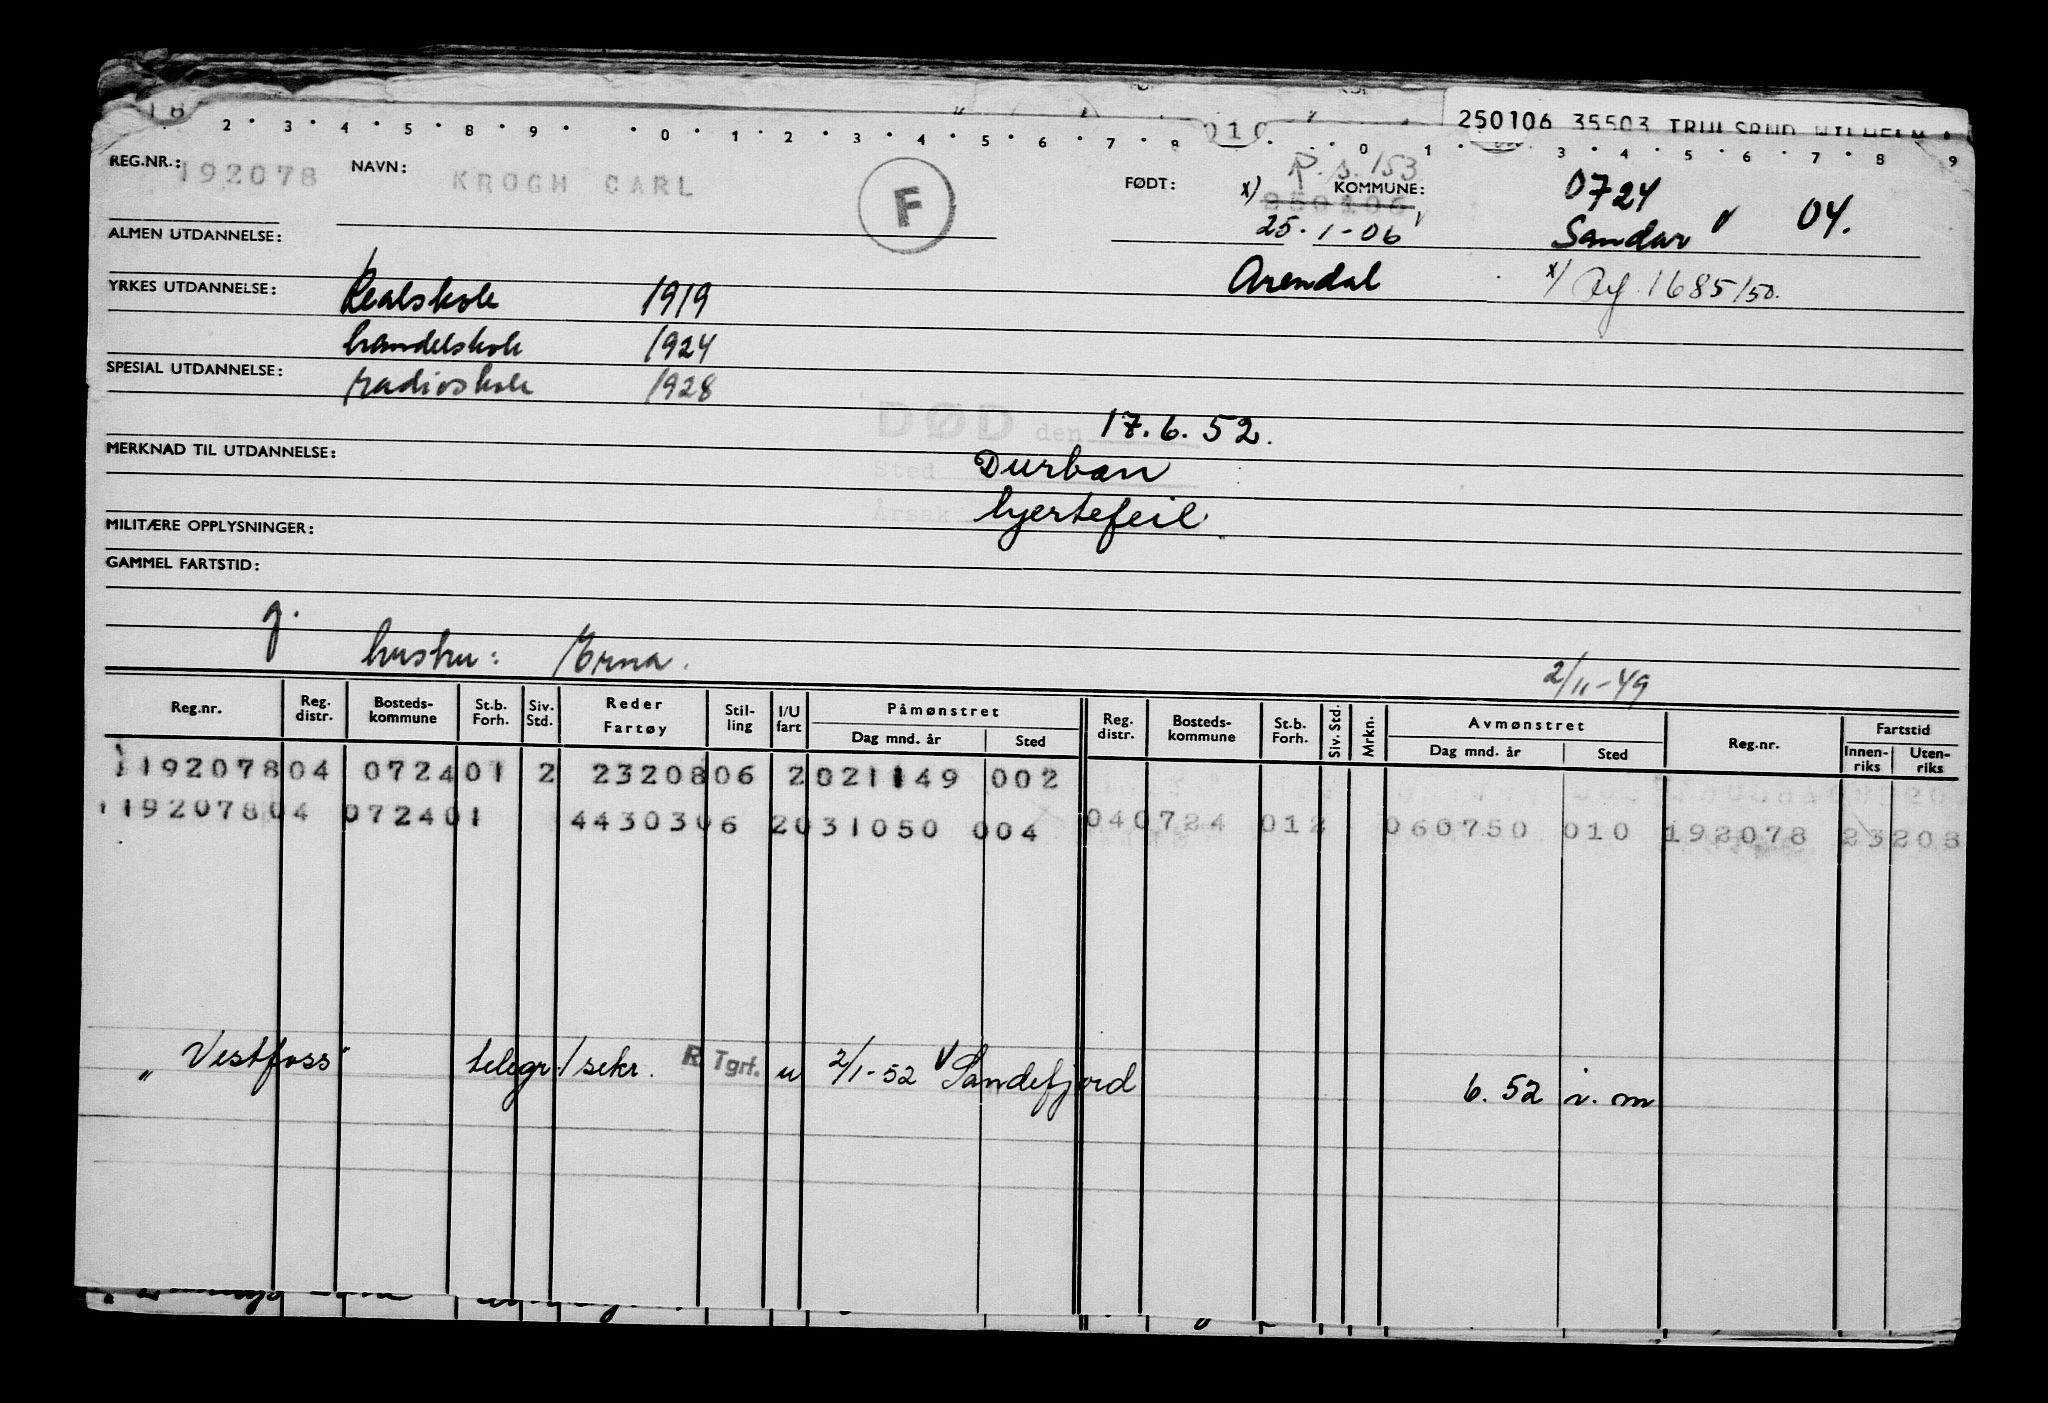 250106 35503 TRULSRUD WILHELM
2 3 4 5 8 9 0 1 2 3 4 5 6 7 8 010 0 1 3 4 5 6 7 8 9
REG.NR.: 192078 NAVN: KROGH CARL F FØDT: x) 250106 KOMMUNE: 0724 04.
R.s. 153
25.1-06 Sandar v
ALMEN UTDANNELSE:
Arendal x) 1685/50.
YRKES UTDANNELSE: Realskole 1919
handelskole 1924
SPESIAL UTDANNELSE: radioskole 1928
DØD den 17.6.52.
MERKNAD TIL UTDANNELSE: Sted Durban
Årsak hjertefeil.
MILITÆRE OPPLYSNINGER:
GAMMEL FARTSTID:
g. hustru: Erna. 2/11-49
Reg.nr. Reg. distr. Bosteds-kommune St.b. Forh. Siv. Std. Reder Fartøy Stil-ling I/U fart Påmønstret Dag mnd. år Sted Reg. distr. Bosteds-kommune St.b. Forh. Siv. Std. Mrkn. Avmønstret Dag mnd. år Sted Reg.nr. Fartstid Innen-riks Uten-riks
119207804 072401 2 2320806 2021149 002
119207804 072401 4430306 2031050 004 040724 012 060750 010 192078 23208
"Vestfoss" telegr./sekr. R.Tgrf. u 2/1-52 v Sandefjord 6.52 i.m